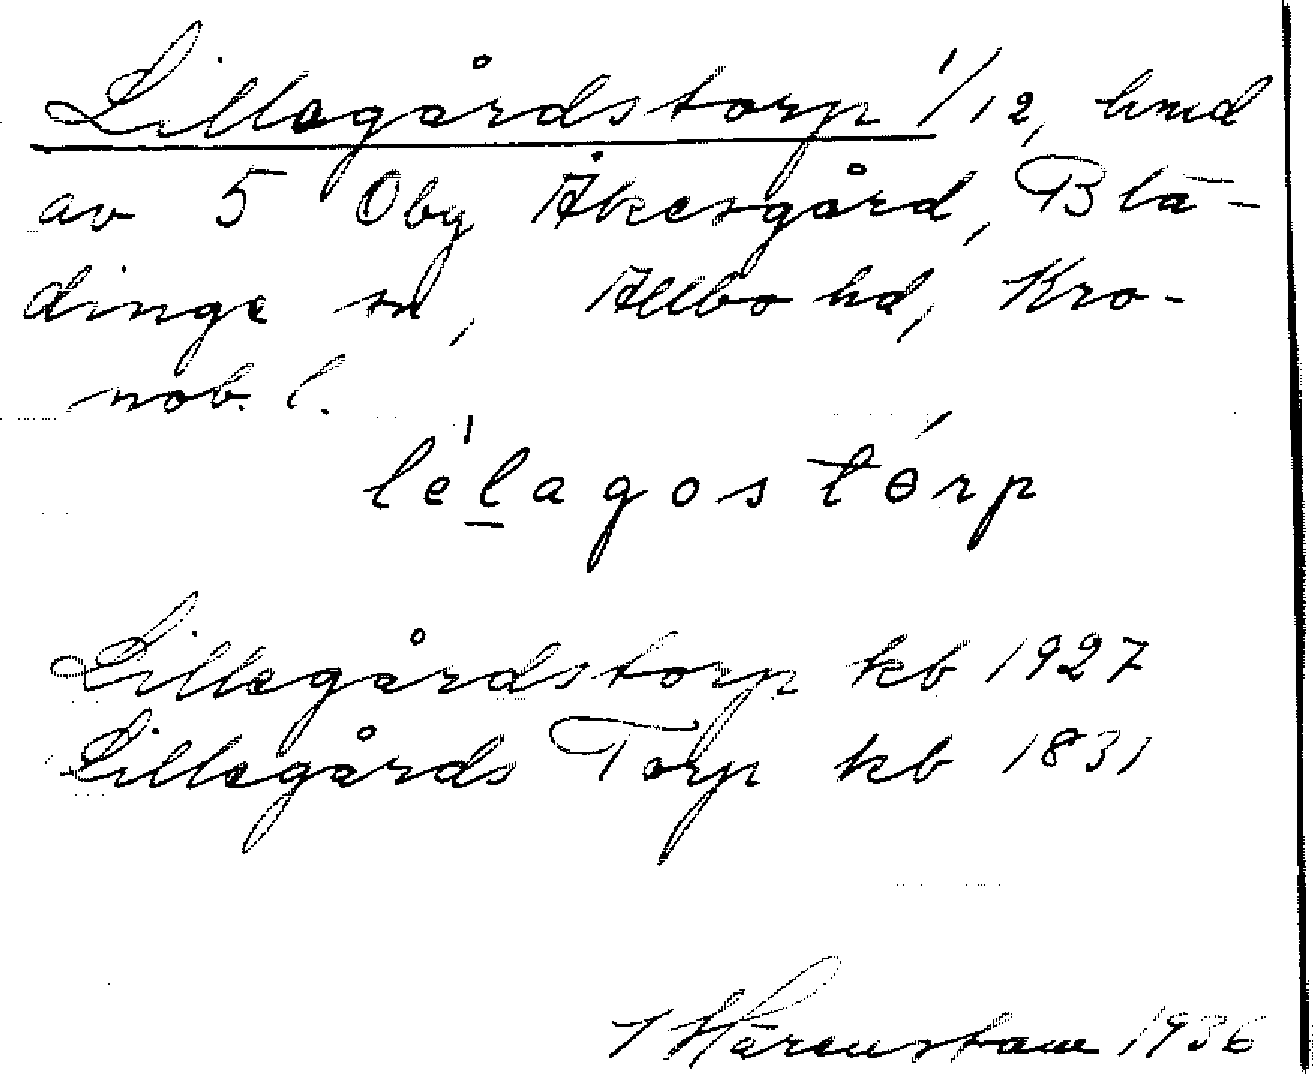 Lillegårdstorp 1/12, hmd
av 5 Oby Åkesgård, Blä-
dinge sn, Allbo hd, Kro-
nob. l.
lélagostórp
Lillegårdstorp kb 1927
Lillegårds Torp kb 1831
Härenstam 1936